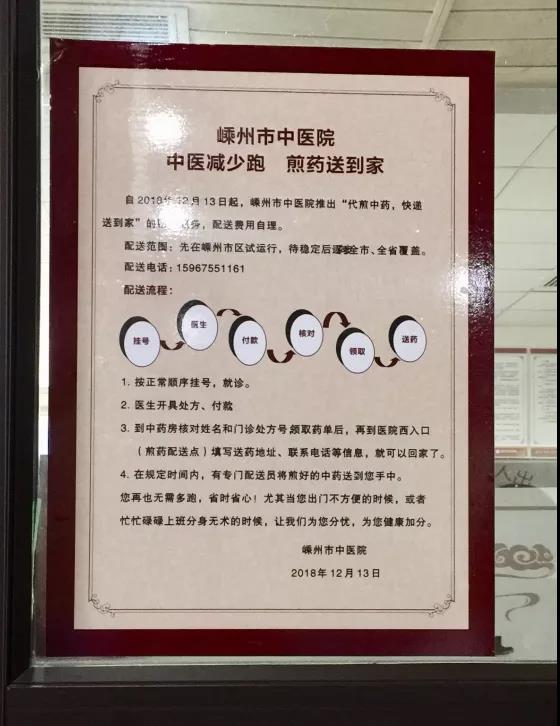 嵊州市中医院
中医减少跑 煎药送到家
自2018年12月13日起，嵊州市中医院推出“代煎中药，快递
送到家”的服务，配送费用自理。
配送范围：先在嵊州市区试运行，待稳定后全市、全省覆盖。
配送电话：15967551161
配送流程：
挂号
医生
付款
核对
领取
送药
1. 按正常顺序挂号，就诊。
2. 医生开具处方、付款
3. 到中药房核对姓名和门诊处方号,领取药单后，再到医院西入口
（煎药配送点）填写送药地址、联系电话等信息，就可以回家了。
4. 在规定时间内，有专门配送员将煎好的中药送到您手中。
您再也无需多跑，省时省心！尤其当您出门不方便的时候，或者
忙忙碌碌上班分身无术的时候，让我们为您分忧，为您健康加分。
嵊州市中医院
2018年12月13日